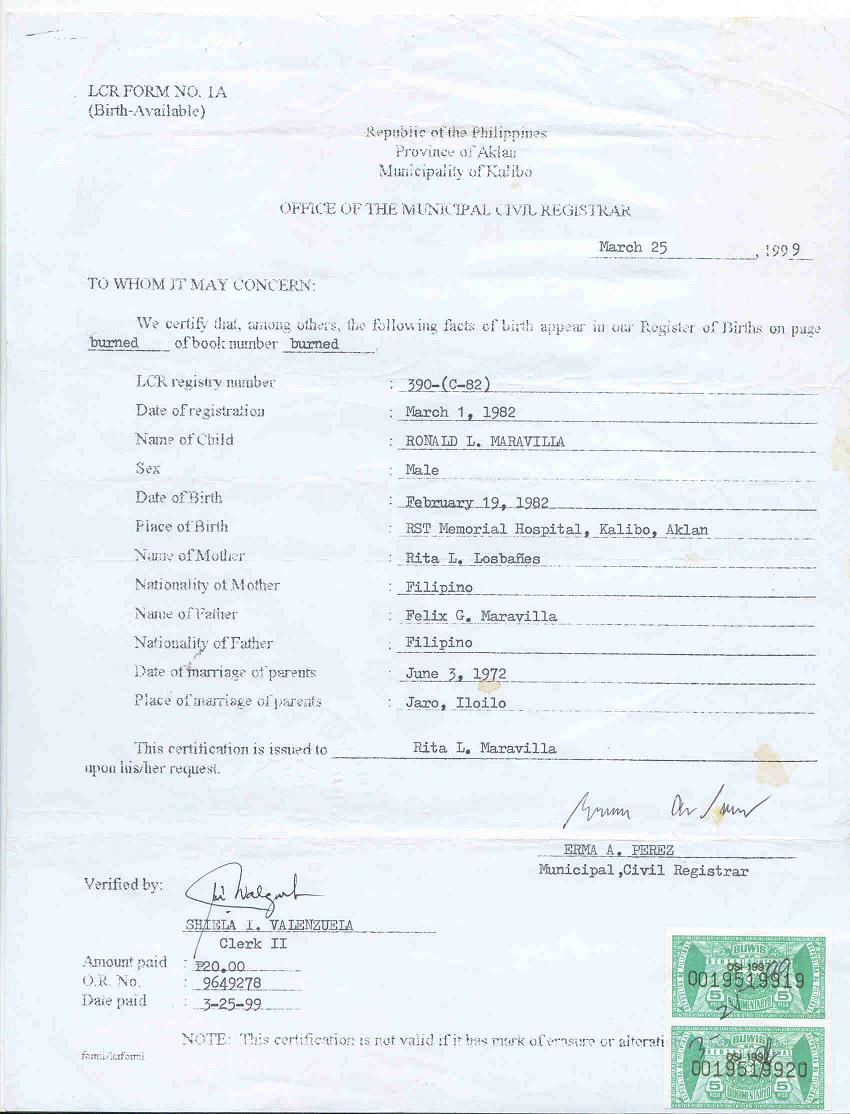 LCR FORM NO. 1A
(Birth-Available)
Republic of the Philippines
Province of Aklan
Municipality of Kalibo
OFFICE OF THE MUNICIPAL CIVIL REGISTRAR
March 25, 1999
TO WHOM IT MAY CONCERN:
We certify that, among others, the following facts of birth appear in our Register of Births on page
burned of book number burned.
LCR registry number : 390-(C-82)
Date of registration : March 1, 1982
Name of Child : RONALD L. MARAVILLA
Sex : Male
Date of Birth : February 19, 1982
Place of Birth : RST Memorial Hospital, Kalibo, Aklan
Name of Mother : Rita L. Losbañes
Nationality of Mother : Filipino
Name of Father : Felix G. Maravilla
Nationality of Father : Filipino
Date of marriage of parents : June 3, 1972
Place of marriage of parents : Jaro, Iloilo
This certification is issued to Rita L. Maravilla
upon his/her request.
ERMA A. PEREZ
Municipal,Civil Registrar
Verified by:
SHIELA I. VALENZUELA
Clerk II
Amount paid : ₱20.00
O.R. No. : 9649278
Date paid : 3-25-99
NOTE: This certification is not valid if it has mark of erasure or alterati
BUWIS
0019519919
5 PISO DOKUMENTARYO 5 PISO
BUWIS
0019519920
5 PISO DOKUMENTARYO 5 PISO